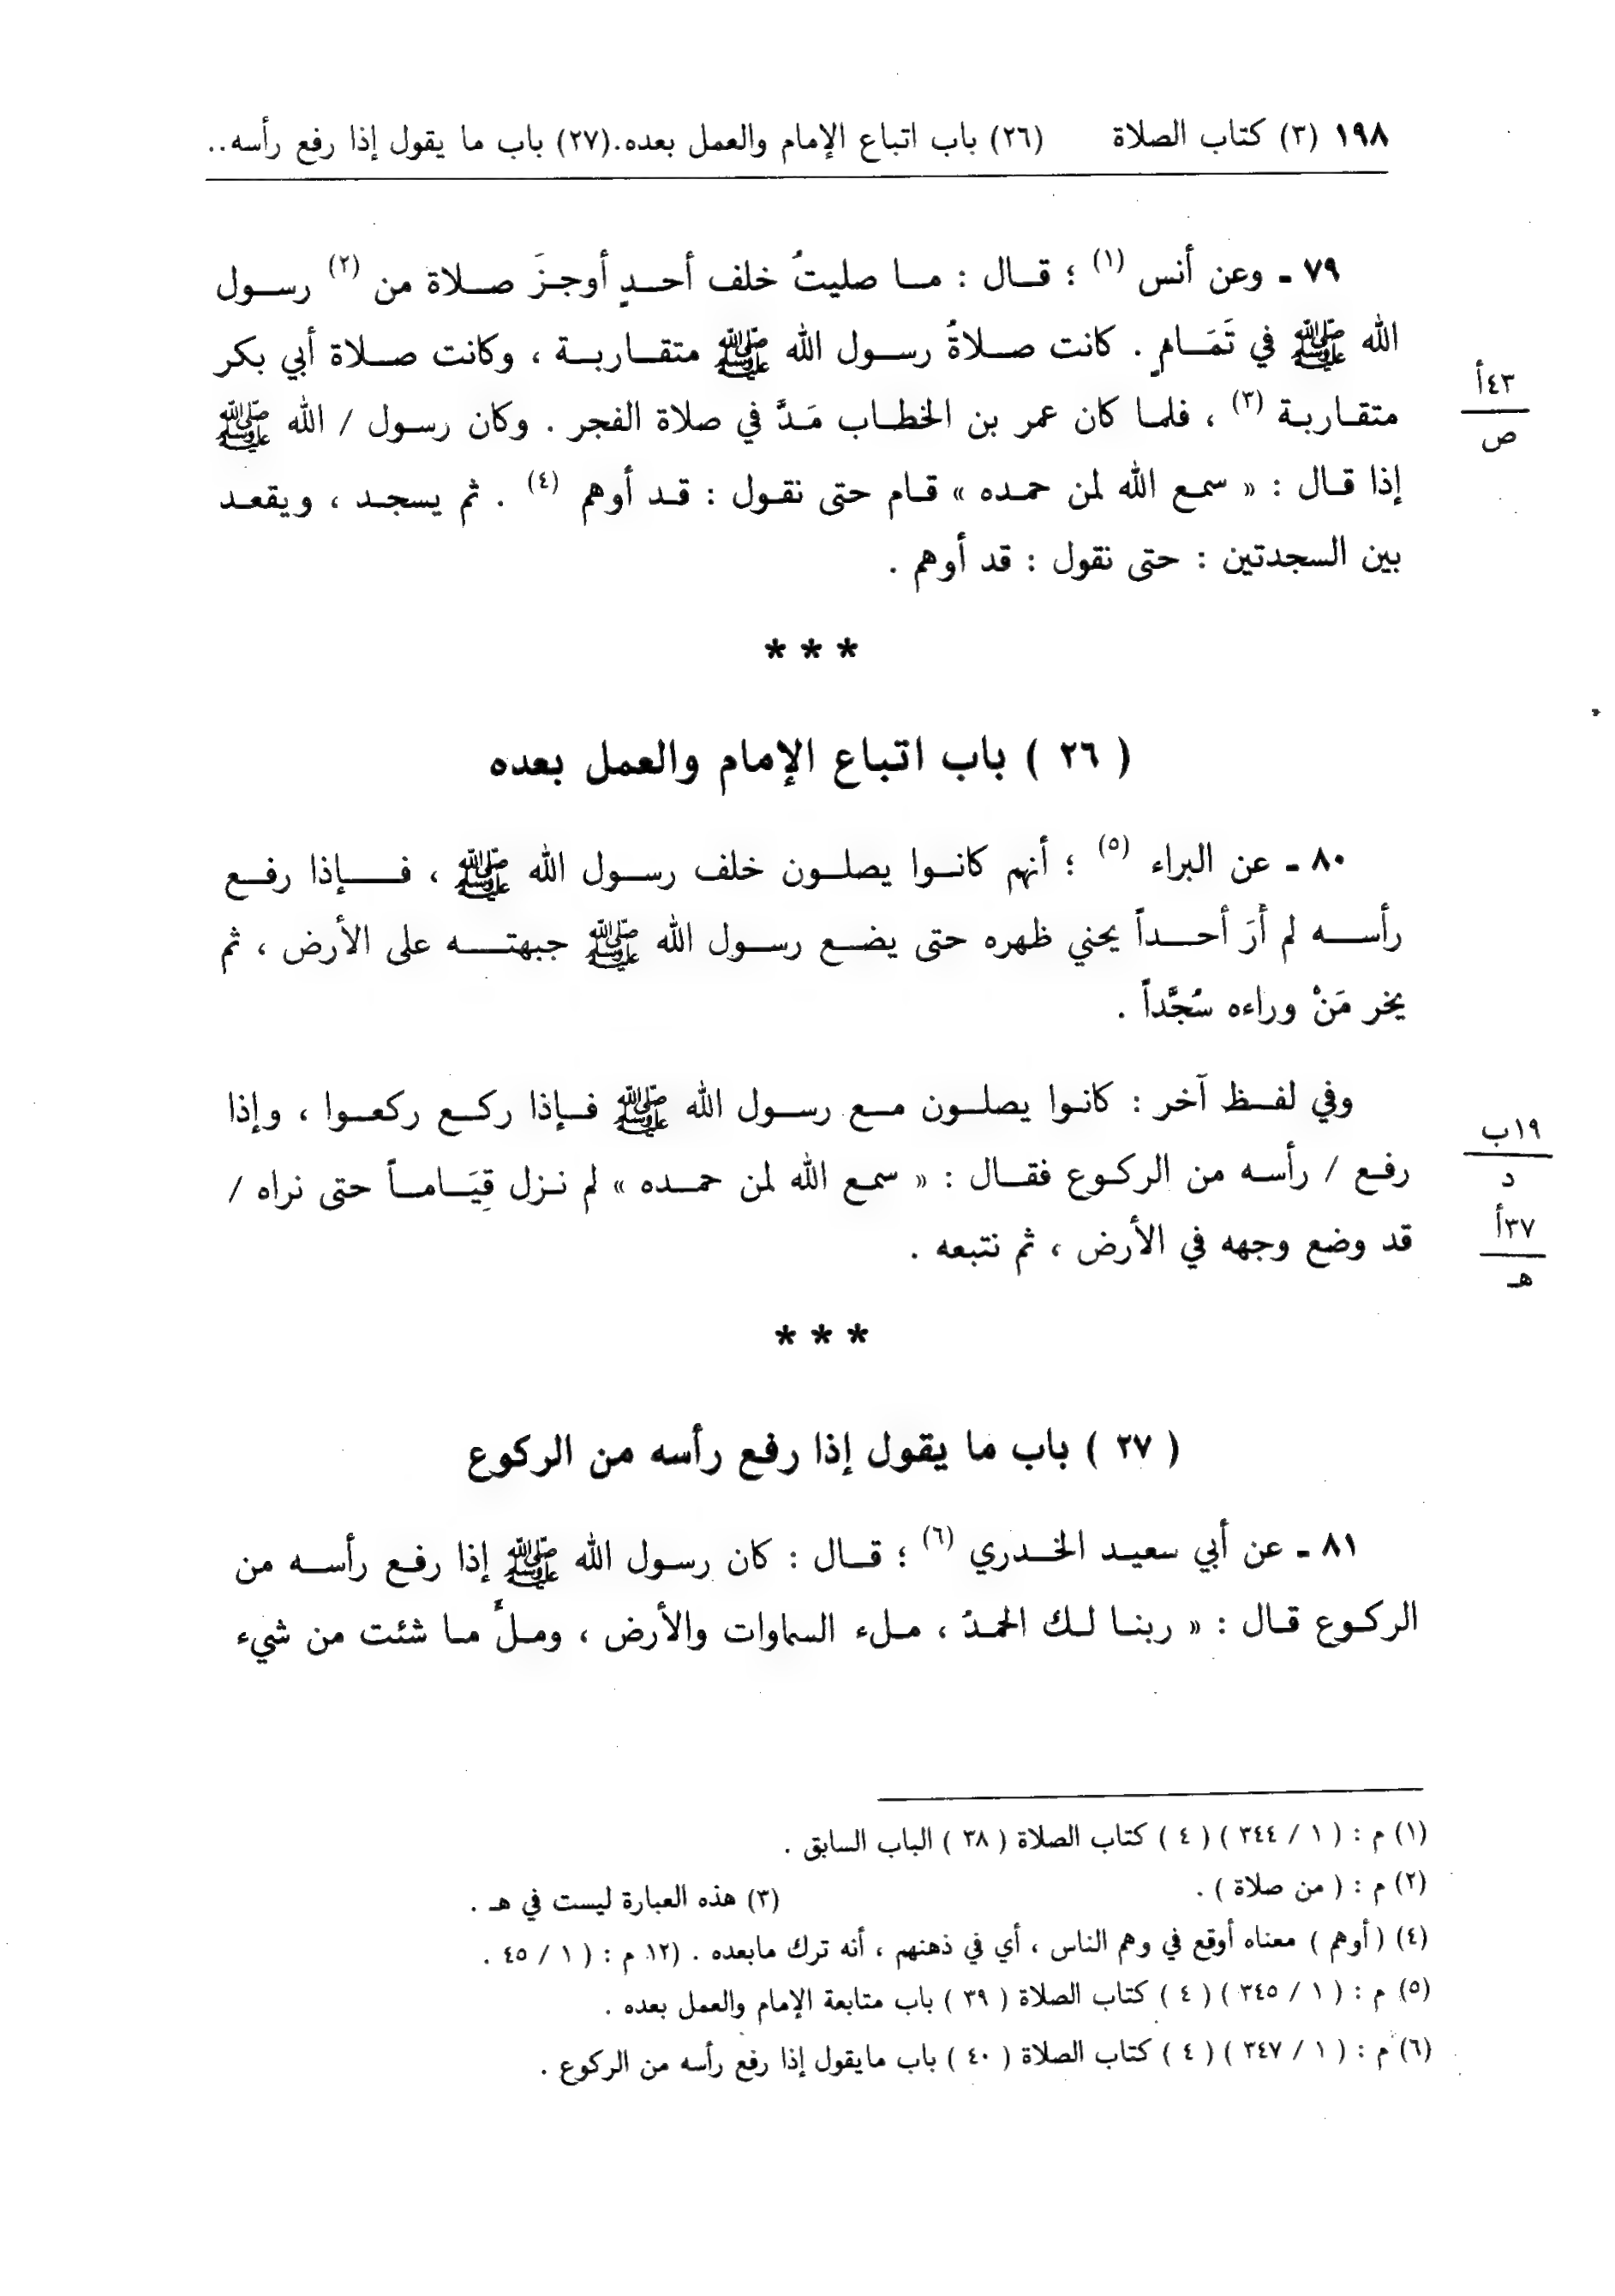 ١٩٨ (٣) كتاب الصلاة (٢٦) باب اتباع الإمام والعمل بعده.(٢٧) باب ما يقول إذا رفع رأسه..
٧٩ ـ وعن أنس (١) ؛ قال : ما صليتُ خلف أحدٍ أوجزَ صلاة من (٢) رسول
الله ﷺ في تَمَامٍ . كانت صلاةُ رسول الله ﷺ متقاربة ، وكانت صلاة أبي بكر
متقاربة (٣) ، فلما كان عمر بن الخطاب مَدَّ في صلاة الفجر . وكان رسول / الله ﷺ
٤٣أ
ص
إذا قال : « سمع الله لمن حمده » قام حتى نقول : قد أوهم (٤) . ثم يسجد ، ويقعد
بين السجدتين : حتى نقول : قد أوهم .
* * *
( ٢٦ ) باب اتباع الإمام والعمل بعده
٨٠ ـ عن البراء (٥) ؛ أنهم كانوا يصلون خلف رسول الله ﷺ ، فإذا رفع
رأسه لم أَرَ أحداً يحني ظهره حتى يضع رسول الله ﷺ جبهته على الأرض ، ثم
يخر مَنْ وراءه سُجَّداً .
وفي لفظ آخر : كانوا يصلون مع رسول الله ﷺ فإذا ركع ركعوا ، وإذا
١٩ب
د
رفع / رأسه من الركوع فقال : « سمع الله لمن حمده » لم نزل قِيَاماً حتى نراه /
٣٧أ
هـ
قد وضع وجهه في الأرض ، ثم نتبعه .
* * *
( ٢٧ ) باب ما يقول إذا رفع رأسه من الركوع
٨١ ـ عن أبي سعيد الخدري (٦) ؛ قال : كان رسول الله ﷺ إذا رفع رأسه من
الركوع قال : « ربنا لك الحمدُ ، ملء السماوات والأرض ، وملُّ ما شئت من شيء
(١) م : ( ١ / ٣٤٤ ) ( ٤ ) كتاب الصلاة ( ٣٨ ) الباب السابق .
(٢) م : ( من صلاة ) . (٣) هذه العبارة ليست في هـ .
(٤) ( أوهم ) معناه أوقع في وهم الناس ، أي في ذهنهم ، أنه ترك مابعده . (١٢ م : ( ١ / ٤٥ .
(٥) م : ( ١ / ٣٤٥ ) ( ٤ ) كتاب الصلاة ( ٣٩ ) باب متابعة الإمام والعمل بعده .
(٦) م : ( ١ / ٣٤٧ ) ( ٤ ) كتاب الصلاة ( ٤٠ ) باب مايقول إذا رفع رأسه من الركوع .